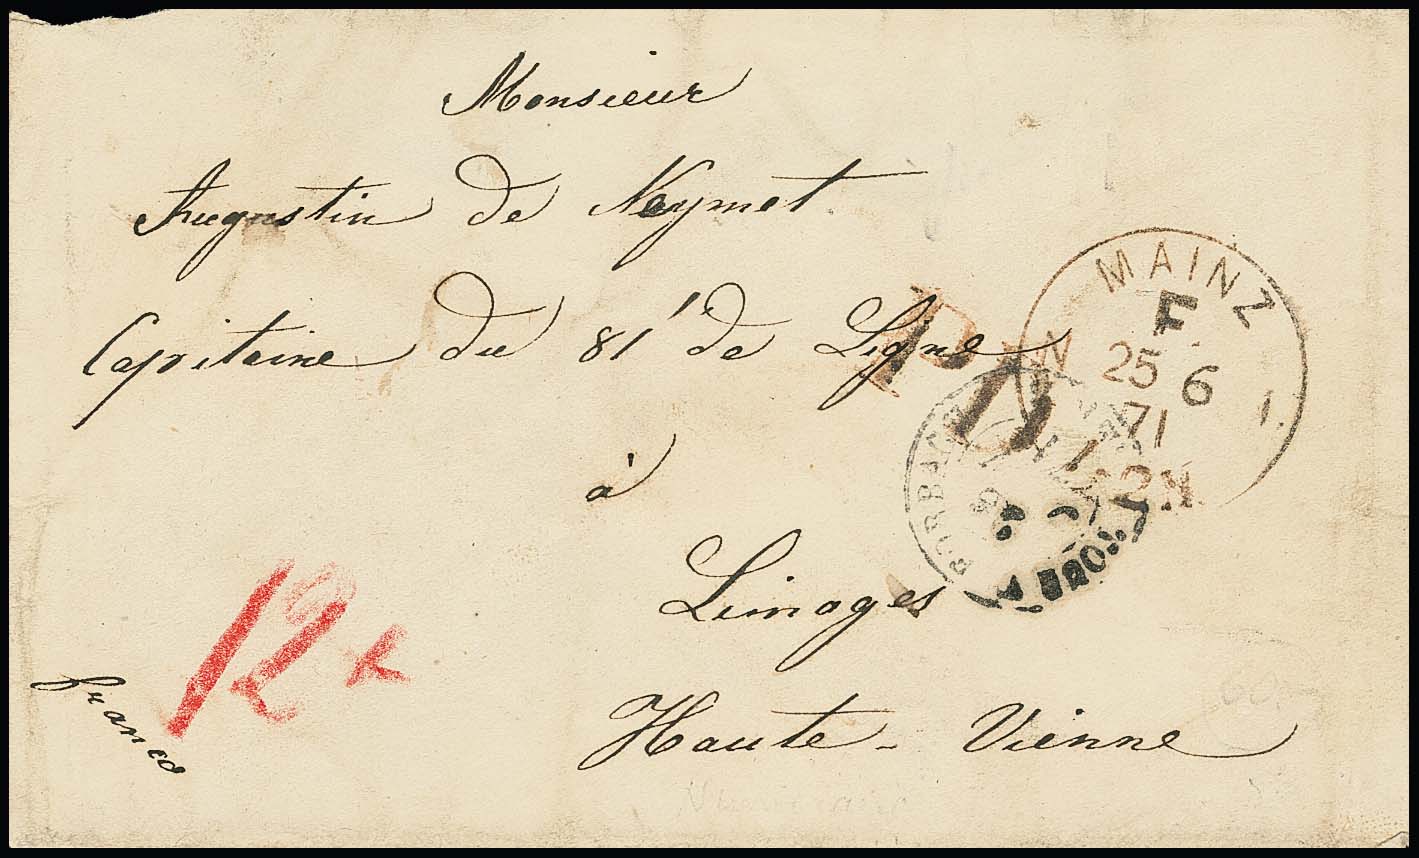 Monsieur
Augustin de Neymet
Capitaine du 81e de Ligne
à
Limoges
Haute - Vienne
franco
12+
P.D.
MAINZ
F.
25 6
71
2N
FORBACH